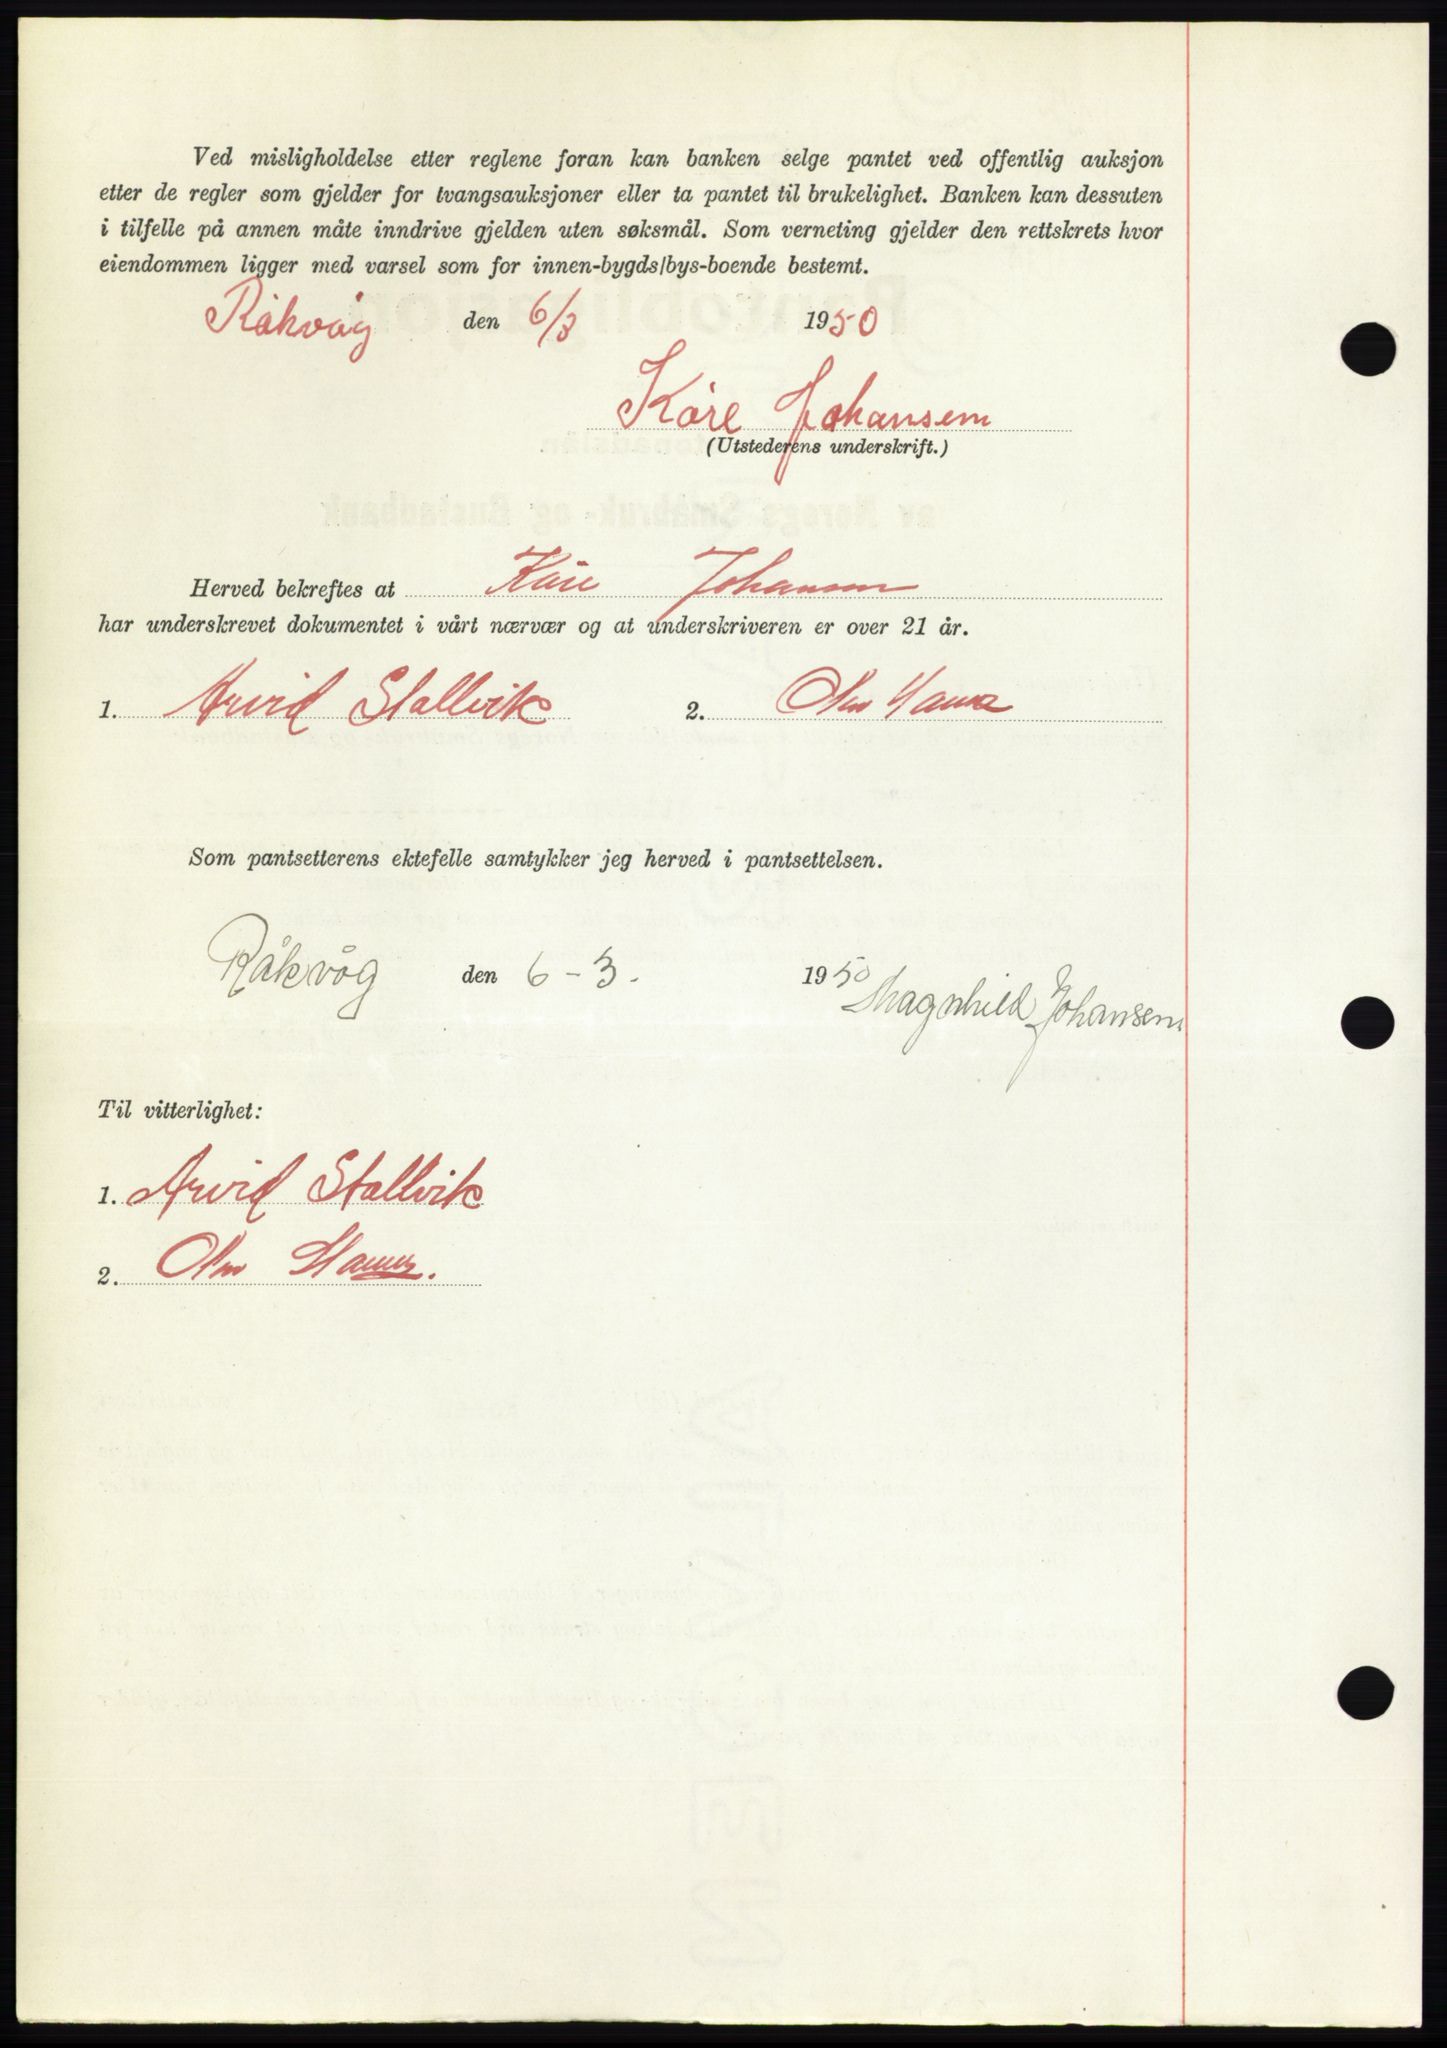 Ved misligholdelse etter reglene foran kan banken selge pantet ved offentlig auksjon
etter de regler som gjelder for tvangsauksjoner eller ta pantet til brukelighet. Banken kan dessuten
i tilfelle på annen måte inndrive gjelden uten søksmål. Som verneting gjelder den rettskrets hvor
eiendommen ligger med varsel som for innen-bygds/bys-boende bestemt.
Råkvåg den 6/3 1950
Kåre Johansen
(Utstederens underskrift.)
Herved bekreftes at Kåre Johansen
har underskrevet dokumentet i vårt nærvær og at underskriveren er over 21 år.
1. Arvid Stallvik 2.
Som pantsetterens ektefelle samtykker jeg herved i pantsettelsen.
Råkvåg den 6-3. 1950
Magnhild Johansen
Til vitterlighet:
1. Arvid Stallvik
2.